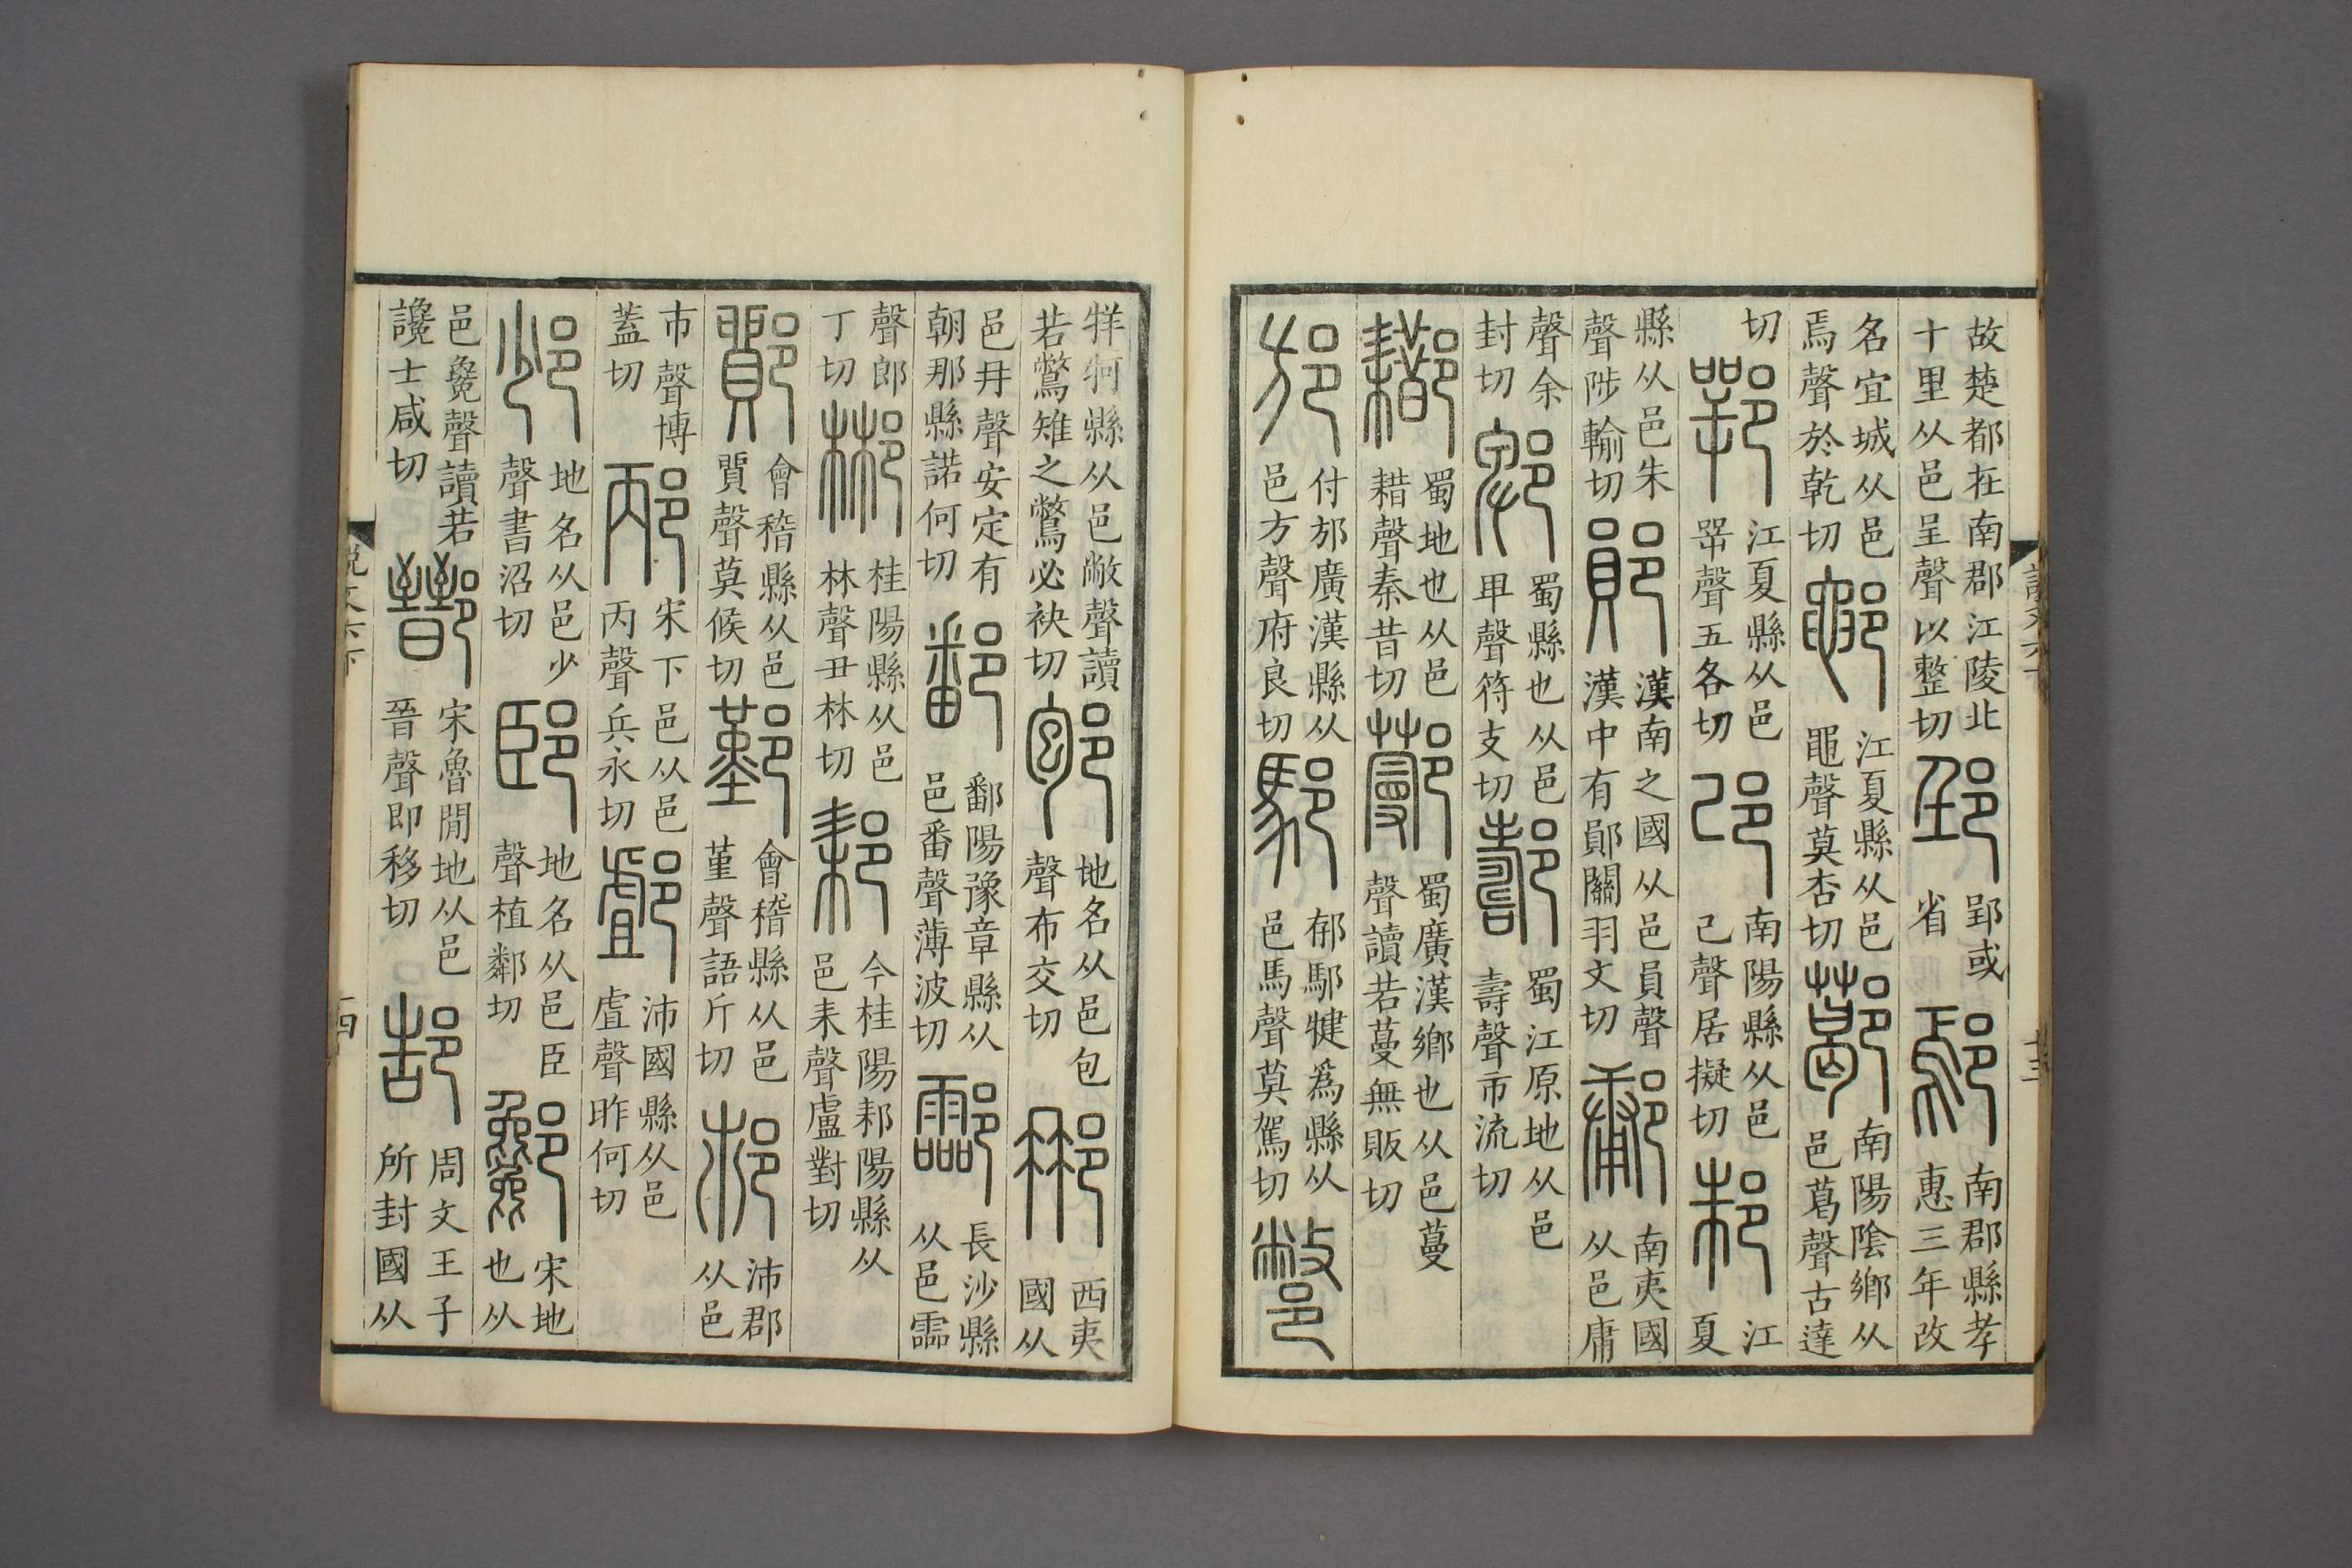 故楚都在南郡江陵北十里从邑呈聲以整切郢或省鄢南郡縣孝惠三年改
名宜城从邑焉聲於乾切鄳江夏縣从邑黽聲莫杏切南陽陰鄉从邑葛聲古達
切鄂江夏縣从邑咢聲五各切邔南陽縣从邑己聲居擬切邾江夏
縣从邑朱聲陟輸切鄖漢南之國从邑員聲漢中有鄖關羽文切鄘南夷國从邑庸
聲余封切郫蜀縣也从邑卑聲符支切蜀江原地从邑壽聲市流切
蜀地也从邑耤聲秦昔切蜀廣漢鄉也从邑蔓聲讀若蔓無販切
邡付邡廣漢縣从邑方聲府良切䣖䣖犍爲縣从邑馬聲莫駕切鄨
牂牁縣从邑敝聲讀若鷩雉之鷩必袂切地名从邑包聲布交切西夷國从
邑冄聲安定有朝那縣諾何切鄱鄱陽豫章縣从邑番聲薄波切酃長沙縣从邑霝
聲郎丁切郴桂陽縣从邑林聲丑林切耒今桂陽耒陽縣从邑耒聲盧對切
鄮會稽縣从邑貿聲莫候切鄞會稽縣从邑堇聲語斤切沛郡从邑
巿聲博蓋切邴宋下邑从邑丙聲兵永切沛國縣从邑虘聲昨何切
地名从邑少聲書沼切地名从邑臣聲植鄰切酁宋地也从
邑毚聲讀若讒士咸切宋魯閒地从邑晉聲即移切郜周文王子所封國从
說文六下
十四